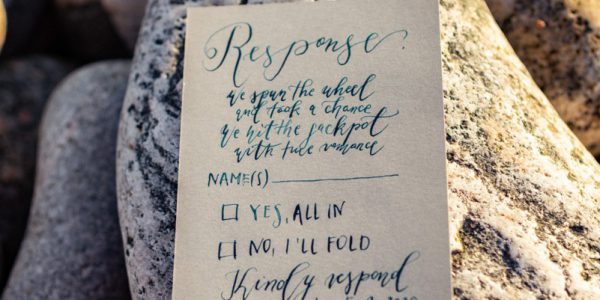 Response
we spun the wheel
and took a chance
we hit the jackpot
with true romance
NAME(S)
YES, ALL IN
NO, I'LL FOLD
Kindly respond